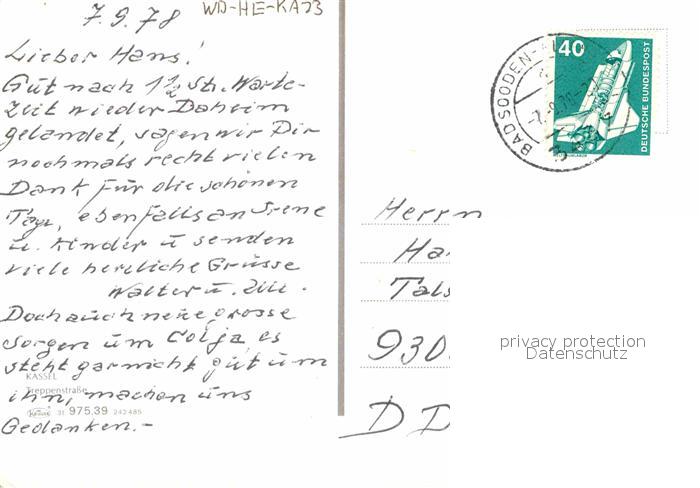 7.9.78
WD-HE-KA73
Lieber Hans!
Gut nach 1 1/2 St. Warte-
zeit wieder Daheim
gelandet, sagen wir Dir
nochmals recht vielen
Dank für die schönen
Tage, ebenfalls an Irene
u. Kinder u senden
viele herzliche Grüsse
Walter u.
Doch auch neue grosse
Sorgen um Colja, es
steht garnicht gut um
ihn, machen uns
Gedanken.-
KASSEL
Treppenstraße
31 975.39 242485
BAD SOODEN-AL
40
DEUTSCHE BUNDESPOST
Herrn
Ha
Tals
930
DD
privacy protection
Datenschutz